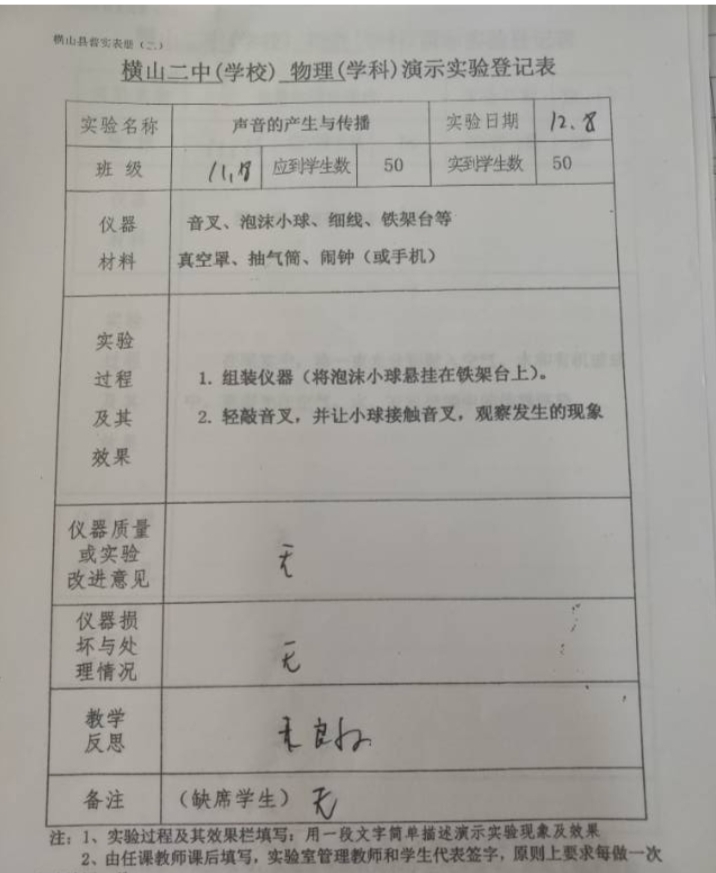 横山县普实表册（二）
横山二中(学校) 物理(学科)演示实验登记表
实验名称 声音的产生与传播 实验日期 12.8
班 级 应到学生数 50 实到学生数 50
仪器
材料
音叉、泡沫小球、细线、铁架台等
真空罩、抽气筒、闹钟（或手机）
实验
过程
及其
效果
1. 组装仪器（将泡沫小球悬挂在铁架台上）。
2. 轻敲音叉，并让小球接触音叉，观察发生的现象
仪器质量
或实验
改进意见
无
仪器损
坏与处
理情况
无
教学
反思
良好
备注 （缺席学生） 无
注：1、实验过程及其效果栏填写：用一段文字简单描述演示实验现象及效果
2、由任课教师课后填写，实验室管理教师和学生代表签字，原则上要求每做一次